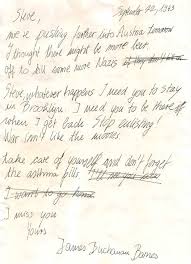 September 22, 1943
Steve,
we're pushing further into Austria tomorrow
I thought there might be more tear
off to kill some more Nazis if they don't
Steve, whatever happens I need you to stay
in Brooklyn. I need you to be there
when I get back. STOP enlisting!
War isn't like the movies.
Take care of yourself and don't forget
the asthma pills. I'll see you
I want to go home
I miss you
Yours
James Buchanan Barnes